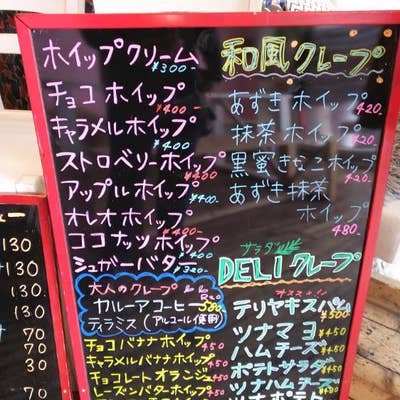 ホイップクリーム
¥300-
チョコ ホイップ
¥400-
キャラメル ホイップ
¥400
ストロベリーホイップ
¥400
アップル ホイップ
¥400
オレオ ホイップ
¥400
ココナッツ ホイップ
¥400
シュガーバター
¥320-
大人のクレープ
R20
カルーアコーヒー 580
ティラミス (アルコール使用)
チョコバナナホイップ 450
キャラメルバナナホイップ 450
チョコレートオランジュ 450
レーズンバターホイップ
和風クレープ
あずきホイップ
420-
抹茶ホイップ
420-
黒蜜きなこホイップ
420-
あずき抹茶
ホイップ
480-
サラダ
DELI クレープ
オススメ
テリヤキスパム
¥500
ツナマヨ ¥450
ハムチーズ ¥450
ポテトサラダ ¥450
ツナハムチーズ
ツナポテト
ュー
130
130
130
70
70
30